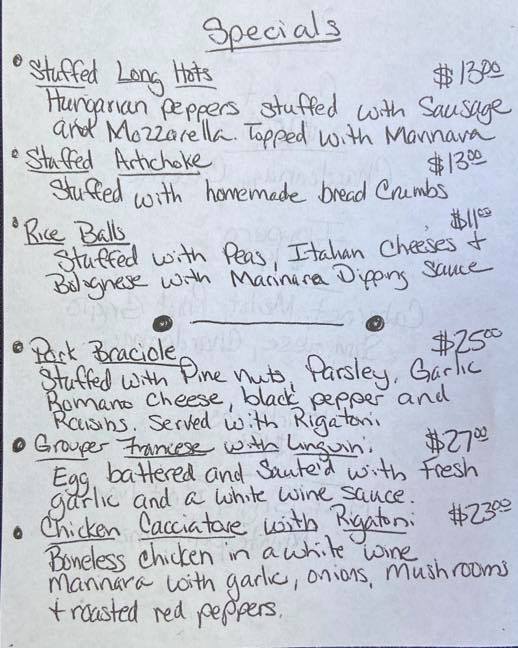 Specials
• Stuffed Long Hots $13.00
Hungarian peppers stuffed with Sausage
and Mozzarella. Topped with Marinara
• Stuffed Artichoke $13.00
Stuffed with homemade bread Crumbs
• Rice Balls $11.00
Stuffed with Peas, Italian Cheeses +
Bolognese with Marinara Dipping Sauce
• Pork Braciole $25.00
Stuffed with Pine nuts, Parsley, Garlic
Romano cheese, black pepper and
Raisins. Served with Rigatoni
• Grouper Francese with Linguini. $27.00
Egg battered and Sauteéd with Fresh
garlic and a white wine sauce.
• Chicken Cacciatore, with Rigatoni $23.00
Boneless chicken in a white wine
Marinara with garlic, onions, Mushrooms
+ roasted red peppers.